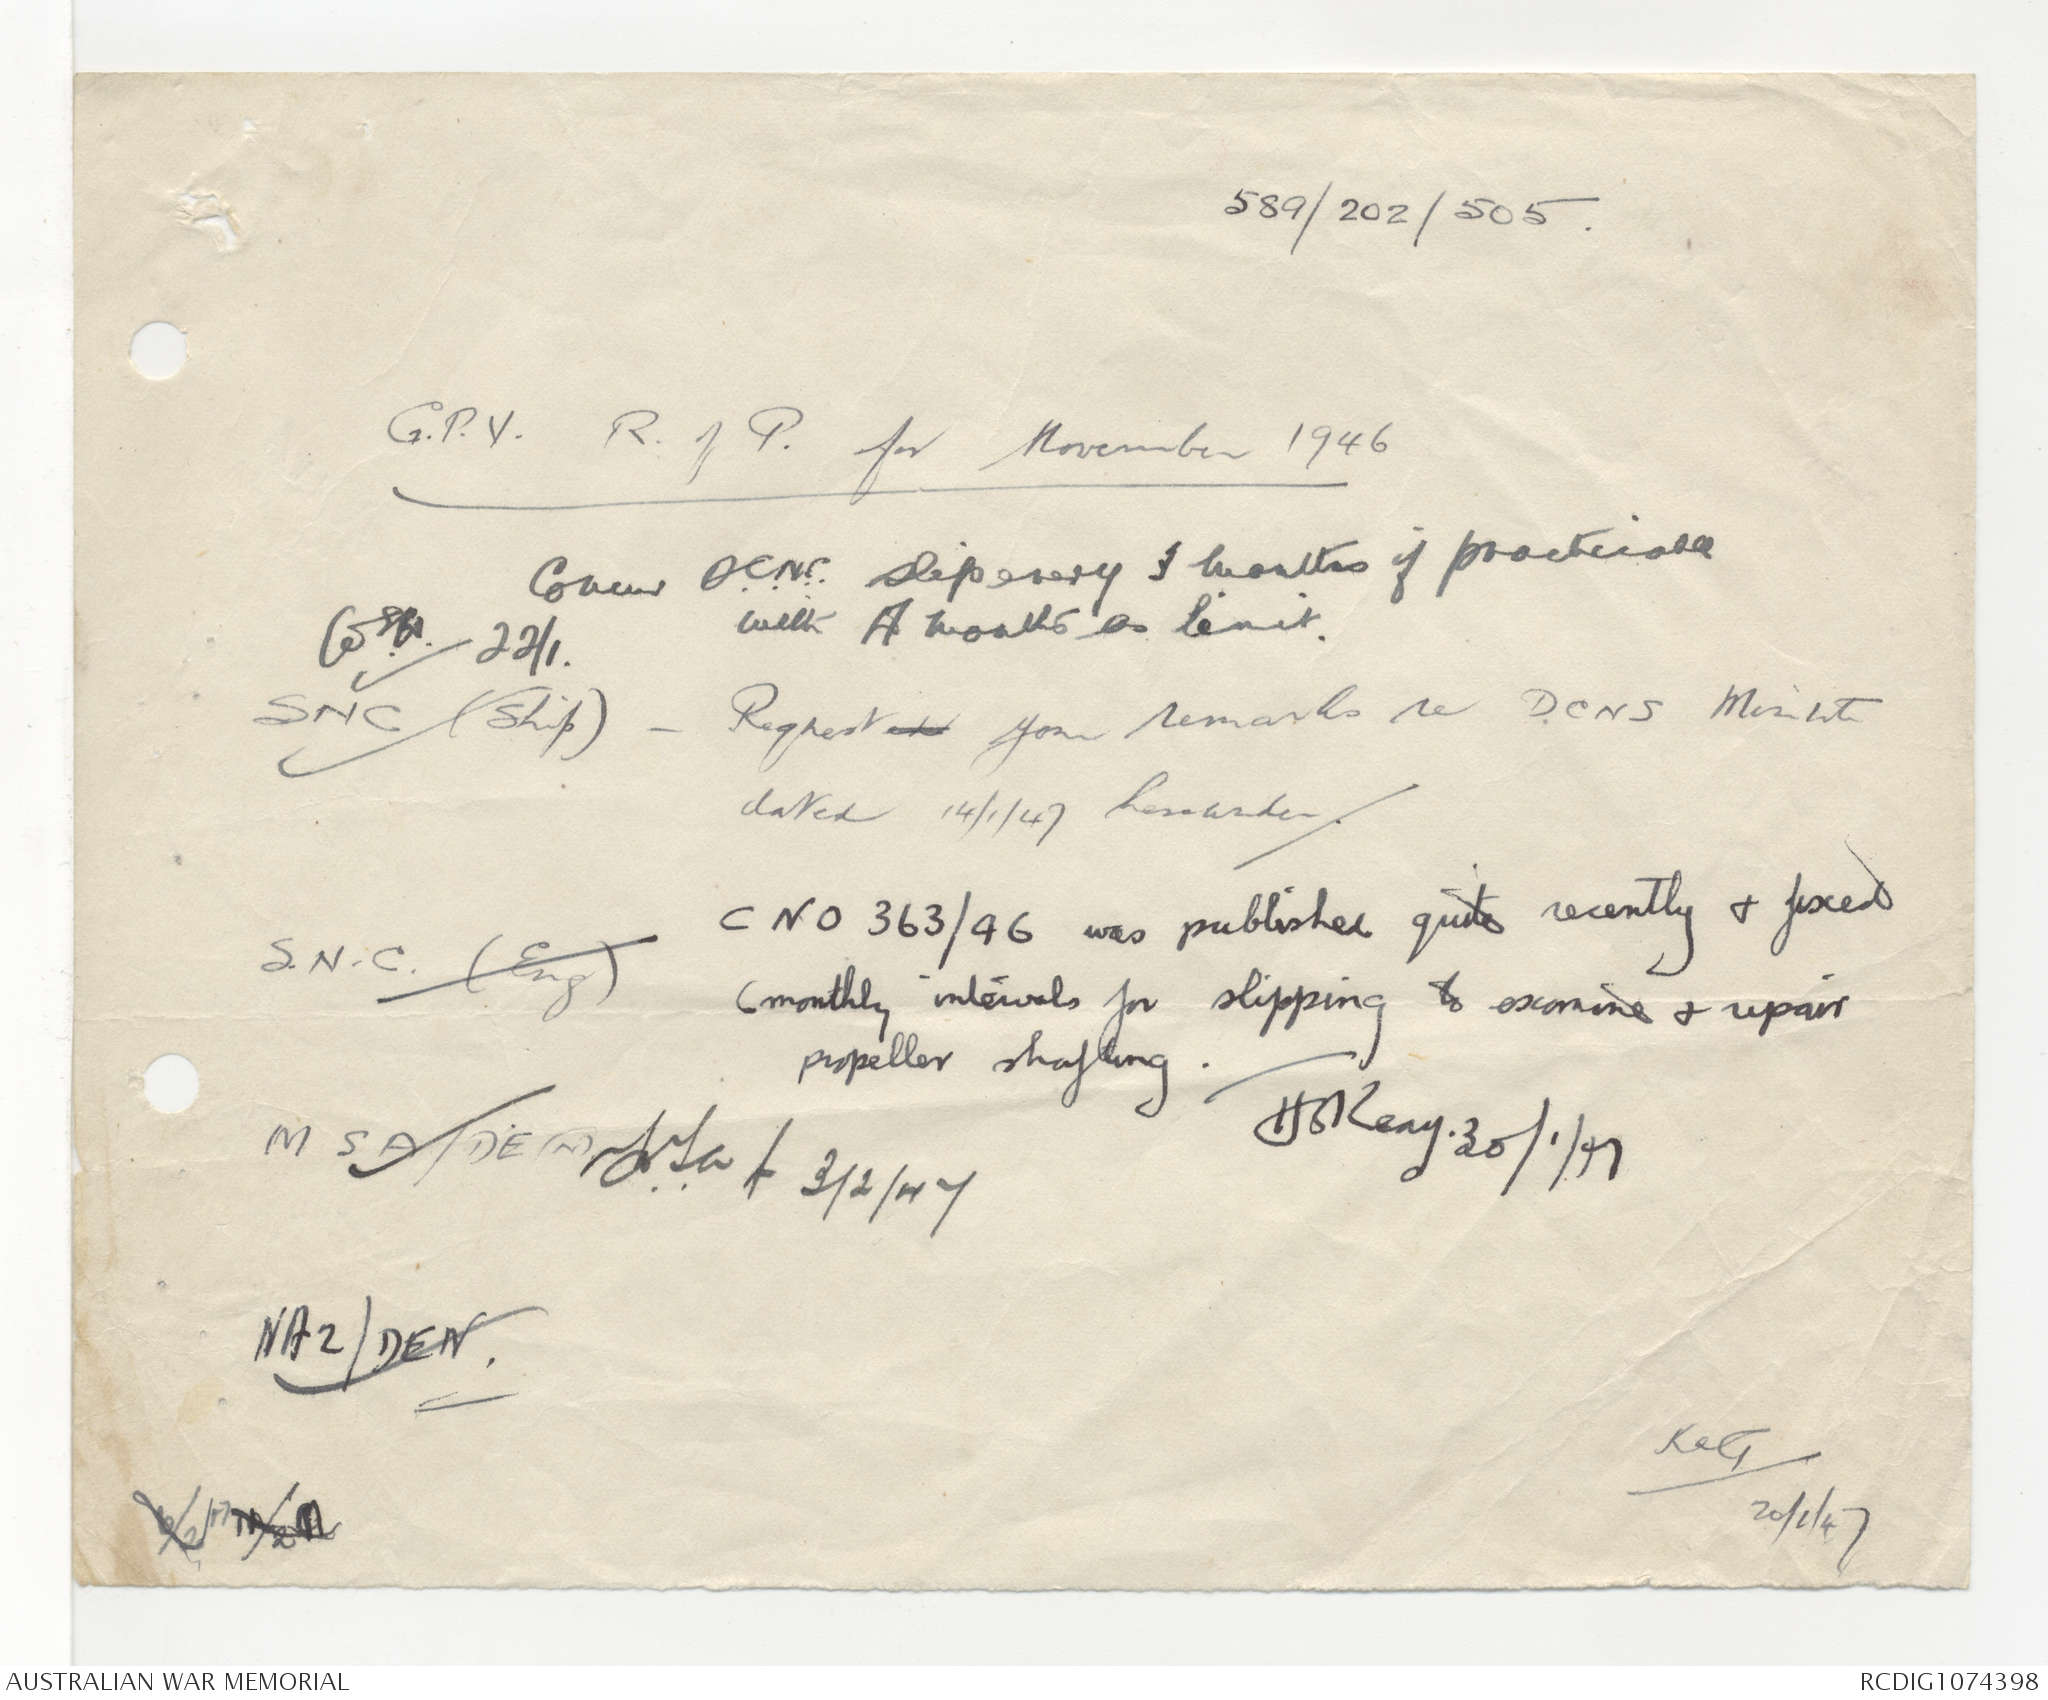 589/202/505.
G.P.V. R. of P. for November 1946
Concur DCNS. slip every 3 months if practicable
with 4 months as limit.
22/1.
SNC (Ship) - Request your remarks re DCNS Minute
dated 14/1/47 hereunder.
CNO 363/46 was published quite recently & fixed
S.N.C. (Eng)
6 monthly intervals for slipping to examine & repair
propeller shafting.
30/1/47
MSA/DEN
3/2/47
NA2/DEN.
20/1/47
AUSTRALIAN WAR MEMORIAL
RCDIG1074398